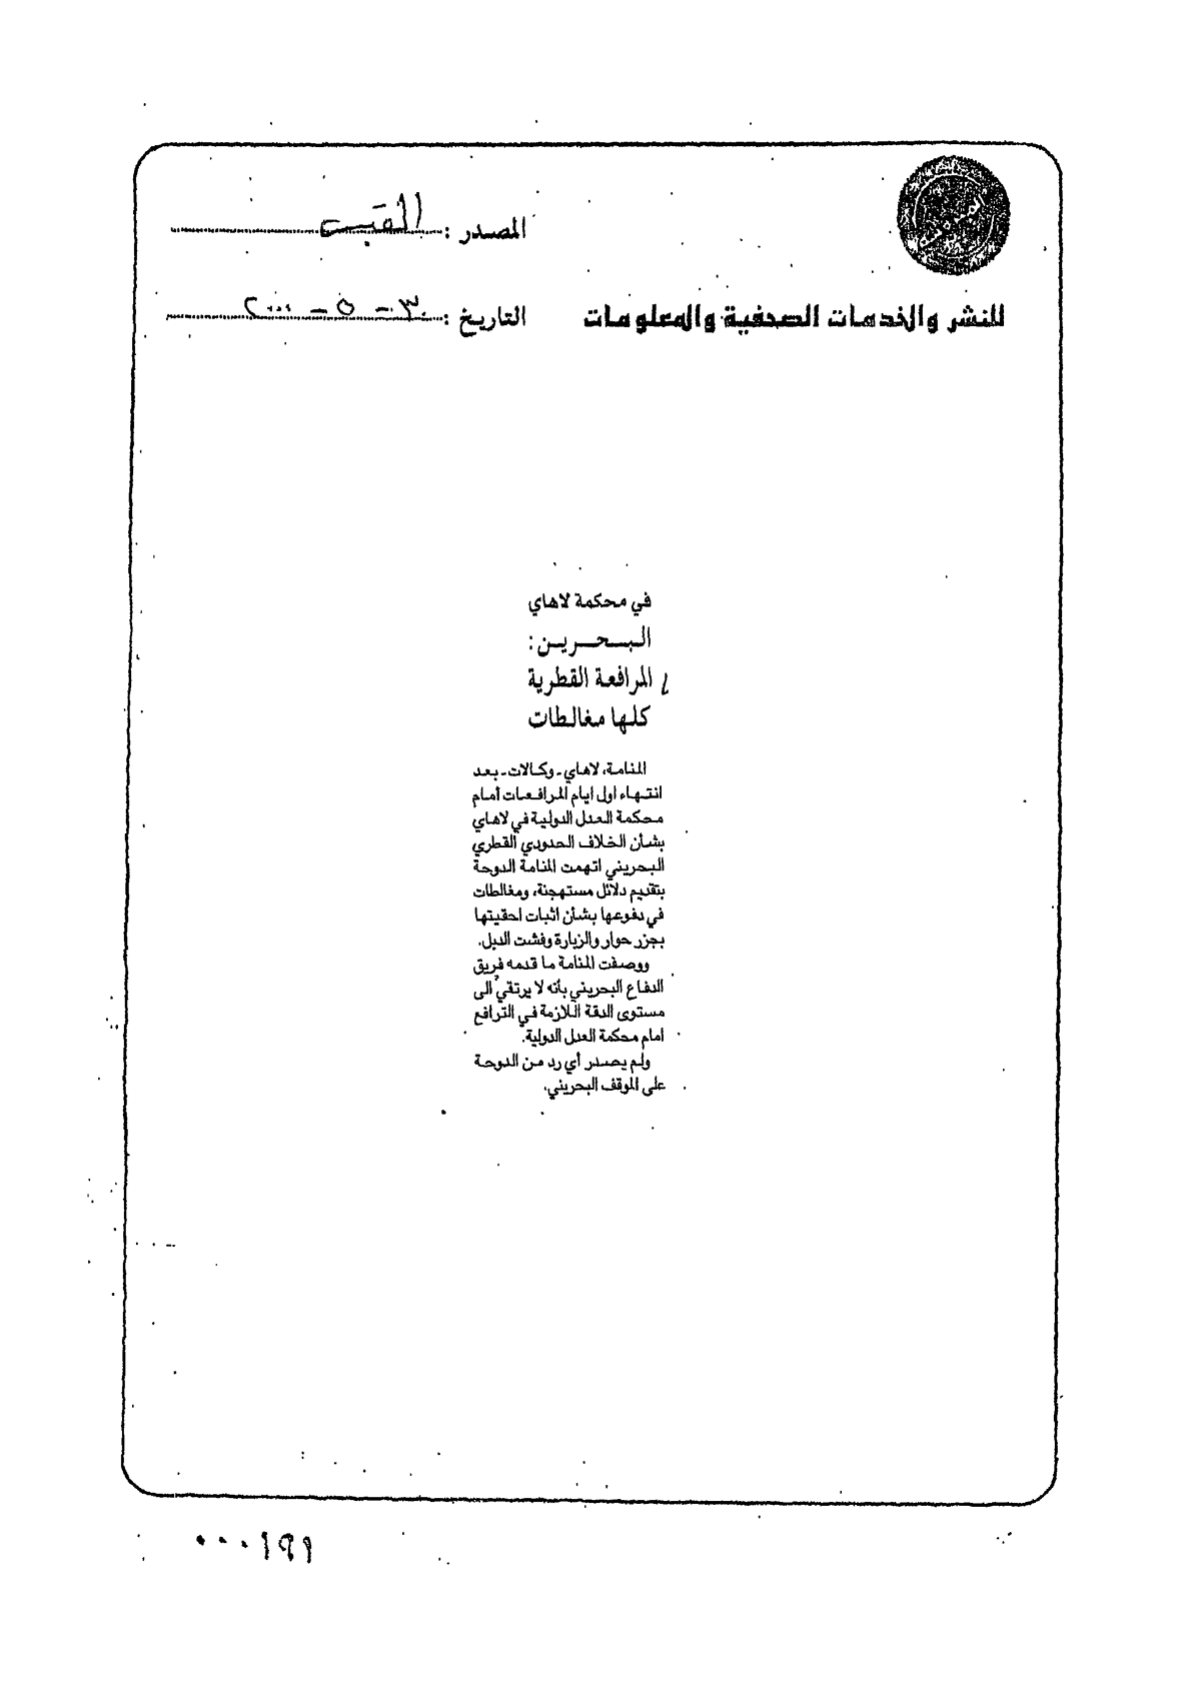 المصدر : القبس
للنشر والخدمات الصحفية والمعلومات
التاريخ : ٣٠ - ٥ - ٢٠٠٠
في محكمة لاهاي
البحرين :
المرافعة القطرية
كلها مغالطات
المنامة، لاهاي - وكالات - بعد
انتهاء اول ايام المرافعات أمام
محكمة العدل الدولية في لاهاي
بشأن الخلاف الحدودي القطري
البحريني اتهمت المنامة الدوحة
بتقديم دلائل مستهجنة، ومغالطات
في دفوعها بشأن اثبات احقيتها
بجزر حوار والزبارة وفشت الديل.
ووصفت المنامة ما قدمه فريق
الدفاع البحريني بأنه لا يرتقي الى
مستوى الدقة اللازمة في الترافع
امام محكمة العدل الدولية.
ولم يصدر أي رد من الدوحة
على الموقف البحريني.
٠٠٠١٩٩